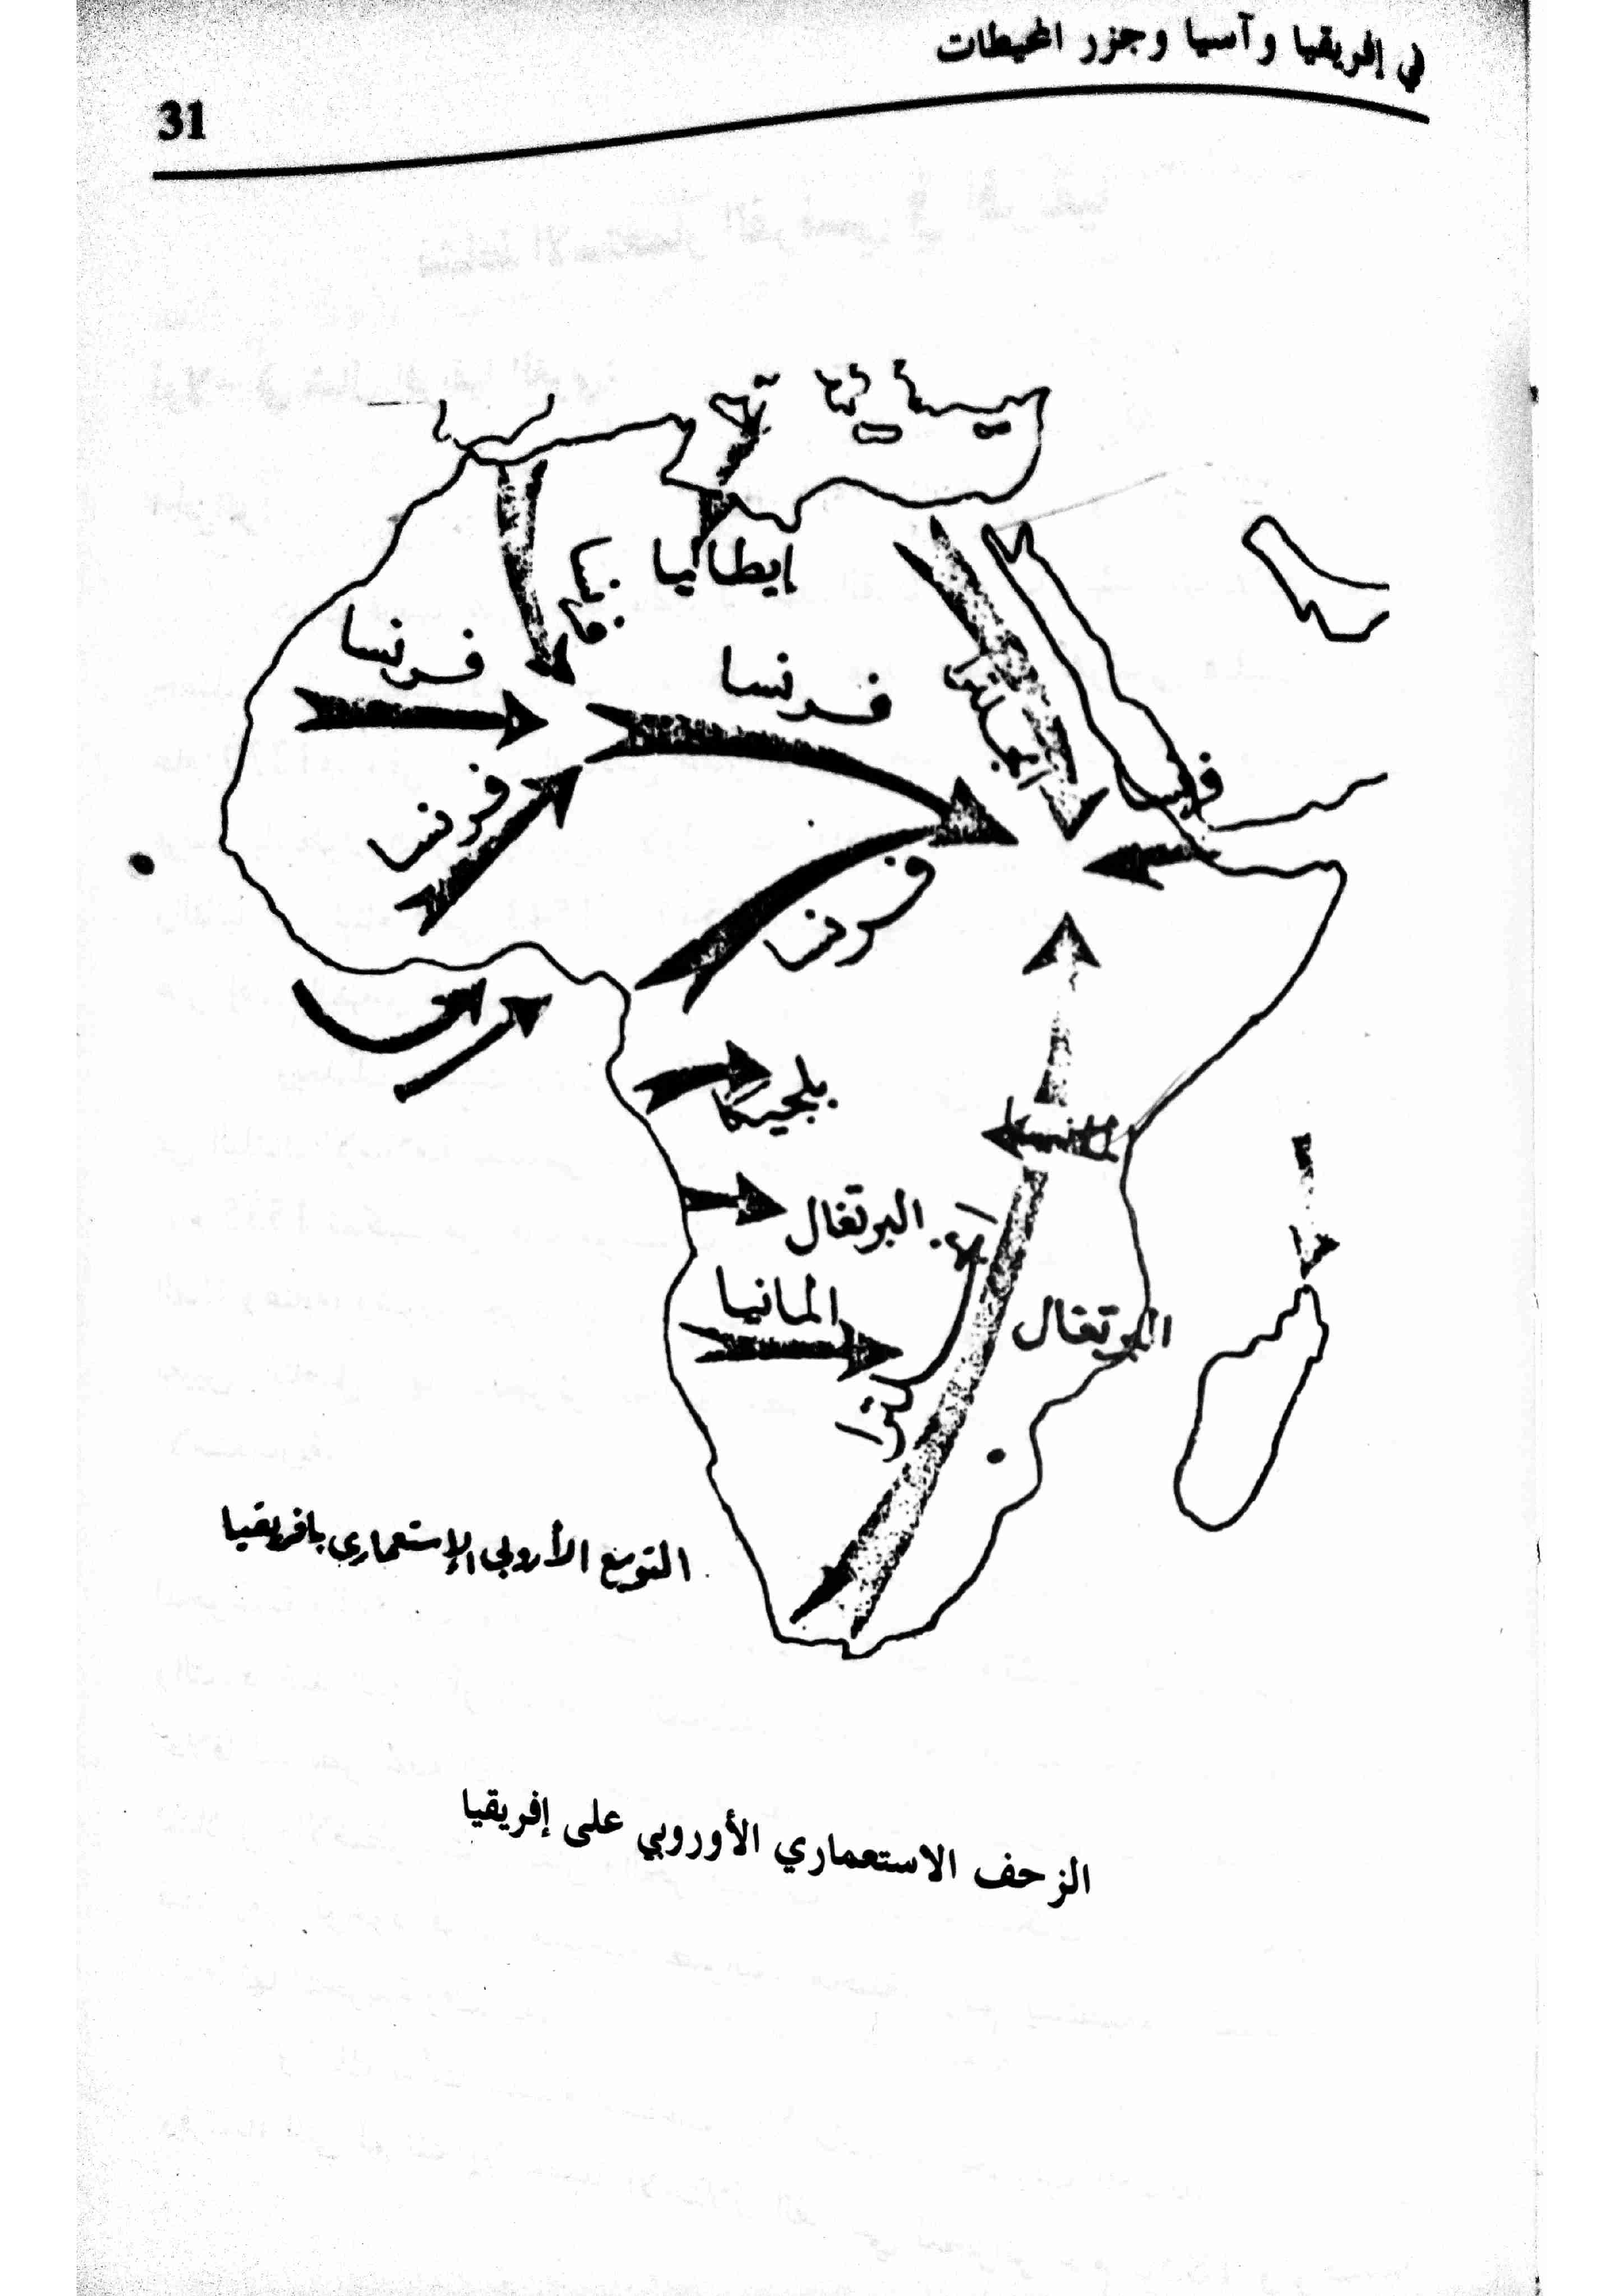 في إفريقيا وآسيا وجزر المحيطات
31
إيطاليا
فرنسا
فرنسا
فرنسا
فرنسا
بلجيكا
البرتغال
المانيا
البرتغال
التوسع الأروبي الإستعماري بافريقيا
الزحف الاستعماري الأوروبي على إفريقيا